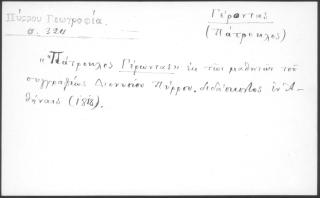 Πύρρου Γεωγραφία.
σ. 324
Γέροντας
(Πάτροκλος)
"Πάτροκλος Γέροντας" ἐκ τῶν μαθητῶν τοῦ
συγγραφέως Διονυσίου Πύρρου, διδάσκοντος ἐν Ἀ-
θήναις (1818).